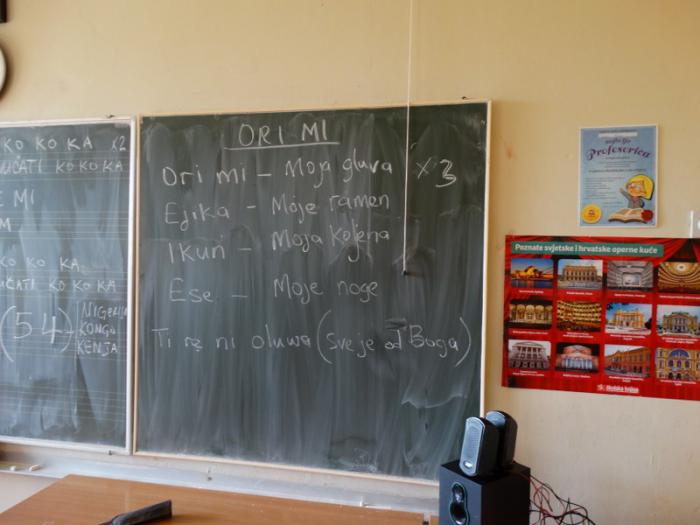 KO KO KO KA x2
UČATI KO KO KA
E MI
M
KO KO KO KA
UČATI KO KO KA
(54) - NIGERIJA
KONGO
KENJA
ORI MI
Ori mi - Moja gluva x3
Ejika - Moje ramen
Ikun - Moja koljena
Ese - Moje noge
Ti rę ni oluwa (Sveje od Boga)
najbolja
Profesorica
Poznate svjetske i hrvatske operne kuće
školska knjiga